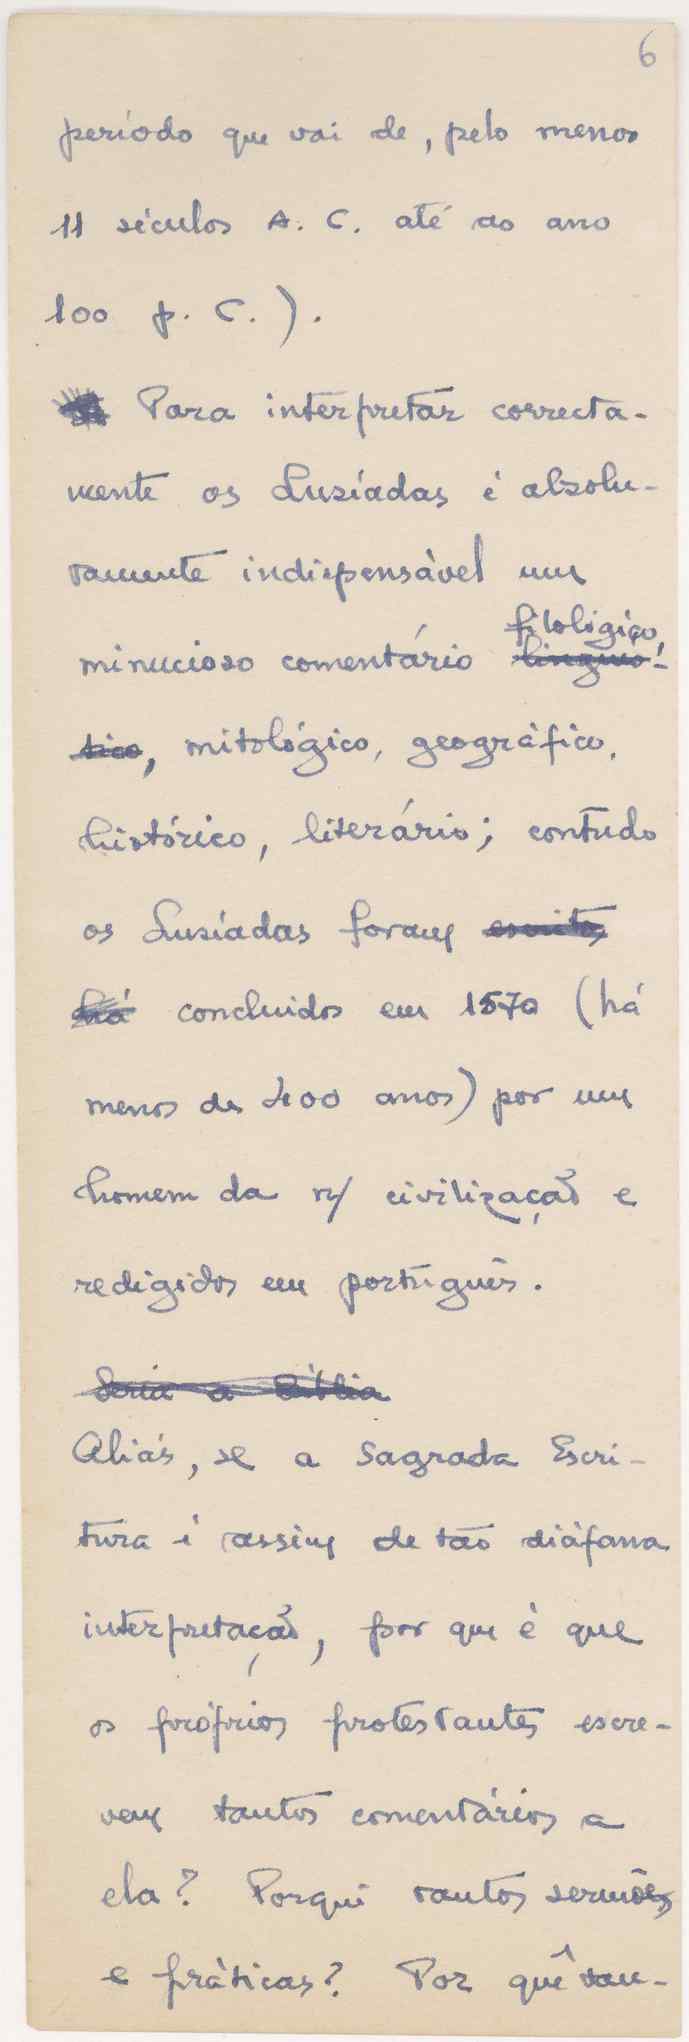 6
período que vai de, pelo menos
11 séculos A. C. até ao ano
100 p. C.).
Para interpretar correcta-
mente os Lusíadas é absolu-
tamente indispensável um
filológico,
minucioso comentário linguís-
tico, mitológico, geográfico,
histórico, literário; contudo
os Lusíadas foram escritos
há concluidos em 1570 (há
menos de 400 anos) por um
homem da n/ civilização e
redigidos em português.
Seria a Bíblia
Aliás, se a Sagrada Escri-
tura é assim de tão diáfana
interpretação, por que é que
os próprios protestantes escre-
vem tantos comentários a
ela? Porquê tantos sermões
e práticas? Por quê tan-